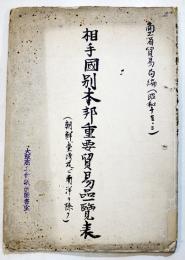 商工省貿易局編(昭和十年三)
相手國別本邦重要貿易品一覽表
(朝鮮臺湾及ビ南洋ヲ除ク)